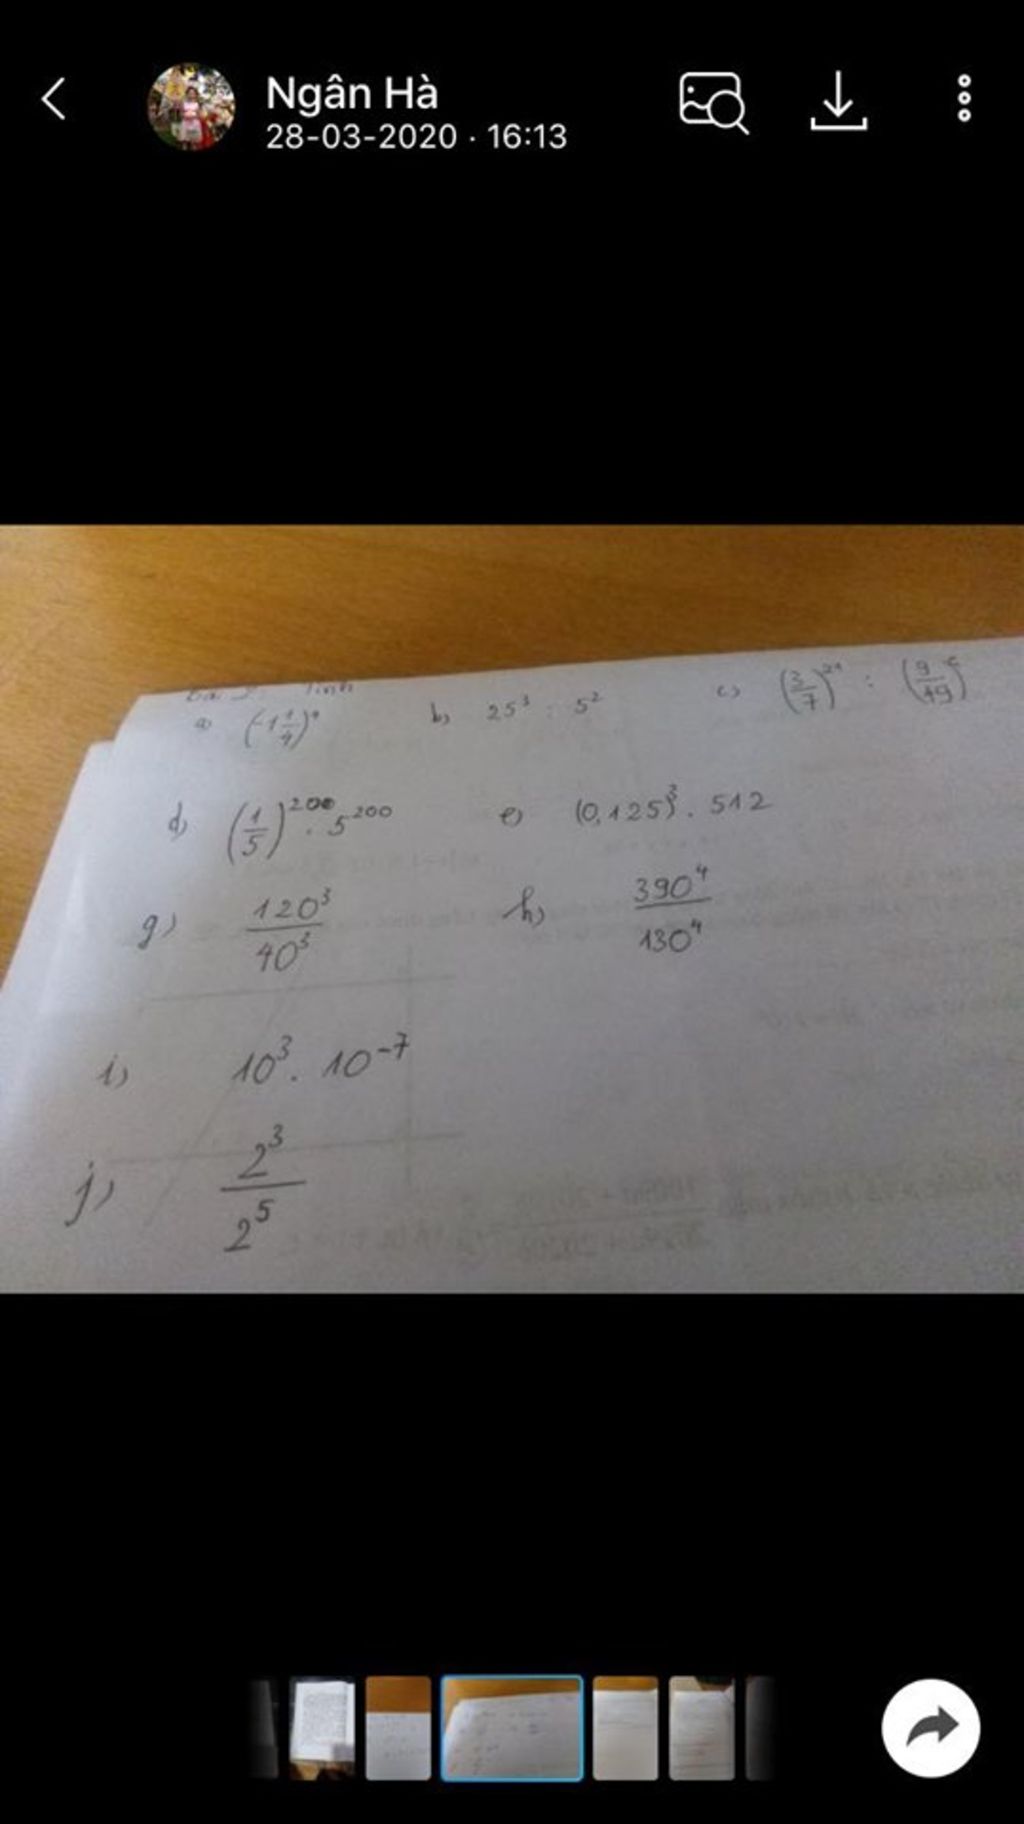 Ngân Hà
28-03-2020 · 16:13
a) b) 25³ : 5² c) (3/7)²¹ : (9/49)
d) (1/5)²⁰⁰ . 5²⁰⁰ e) (0,125)³ . 512
g) 120³/40³ h) 390⁴/130⁴
i) 10³ . 10⁻⁷
j) 2³/2⁵